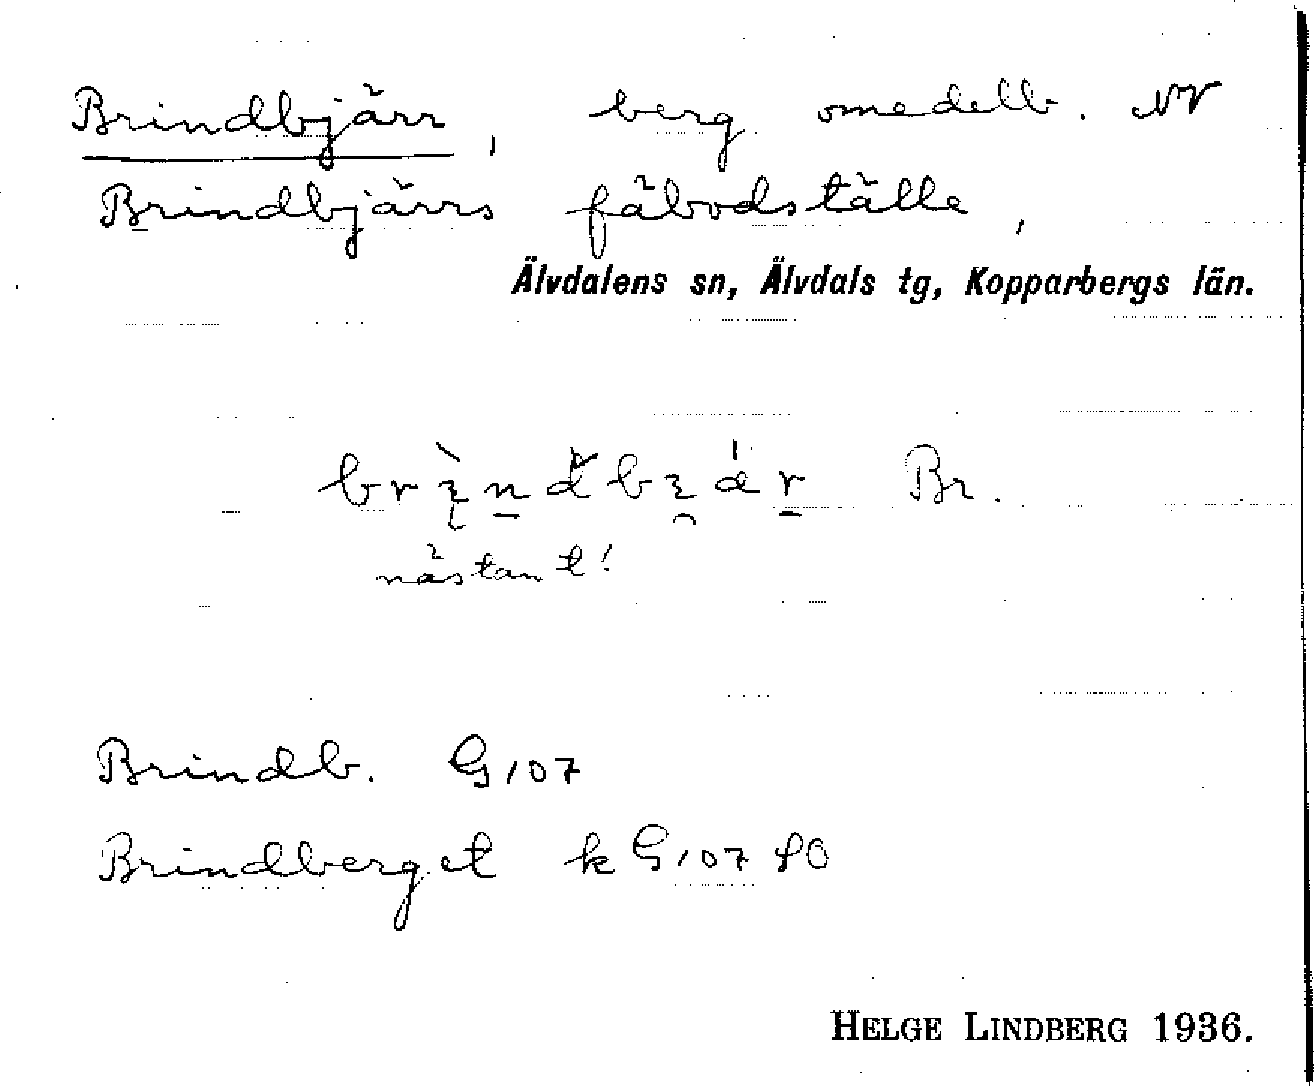 Brindbjärr, berg omedelb. NV
Brindbjärrs fäbodställe,
Älvdalens sn, Älvdals tg, Kopparbergs län.
Br.
nästan t!
Brindb. G107
Brindberget k G107 SO
HELGE LINDBERG 1936.